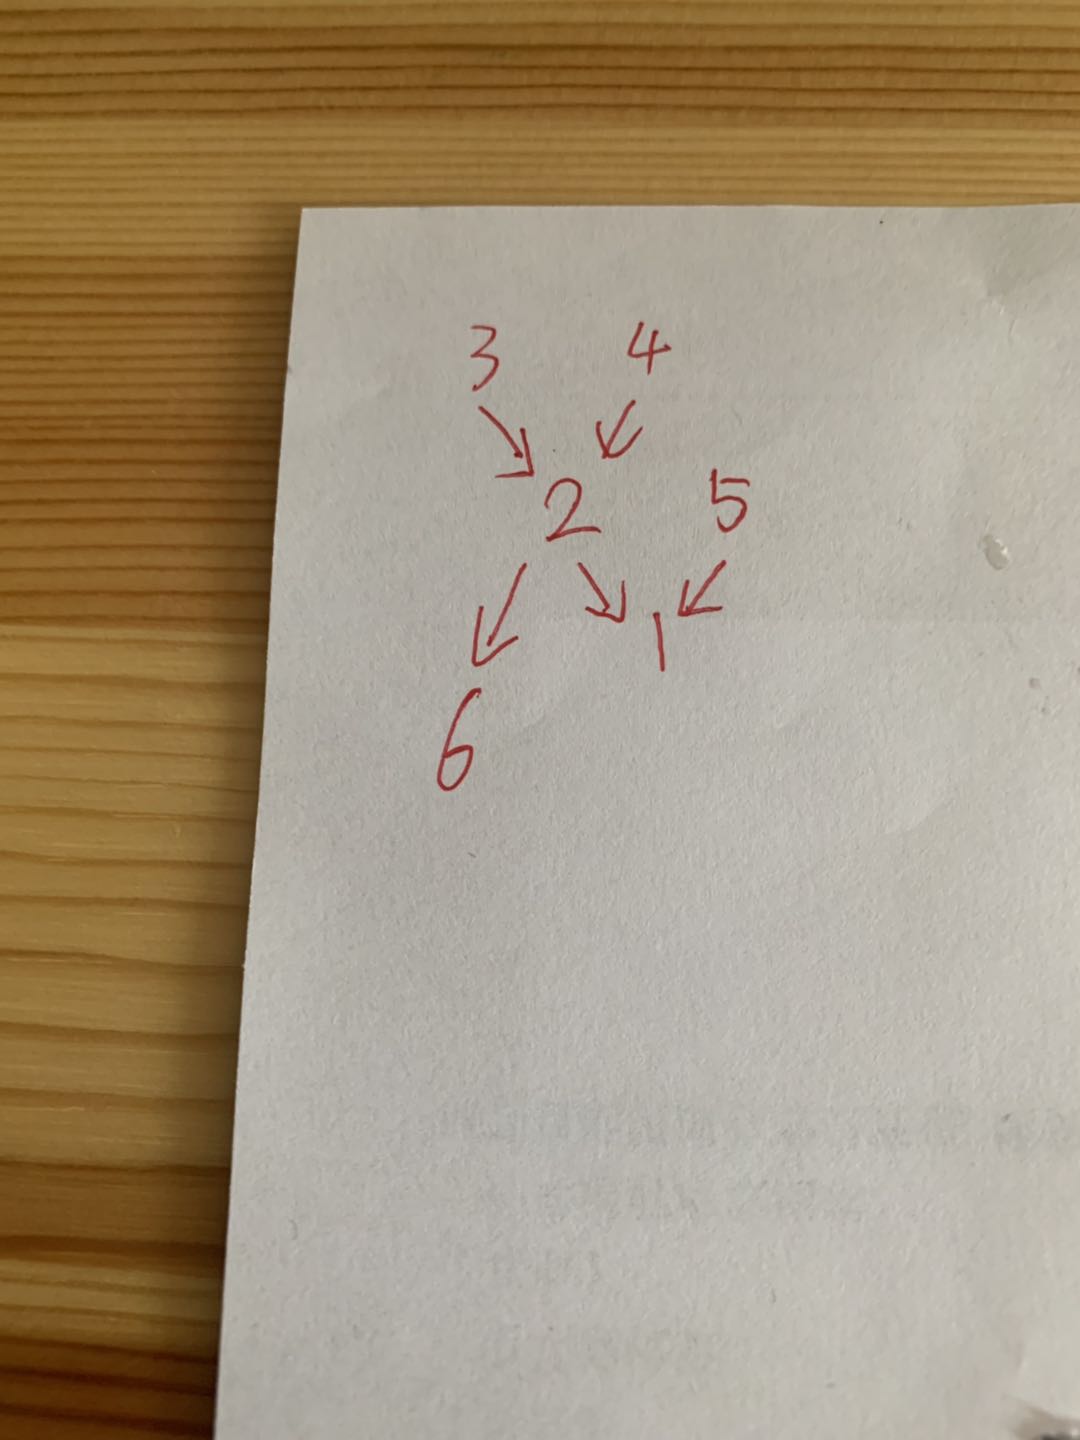 3 4
2 5
1
6